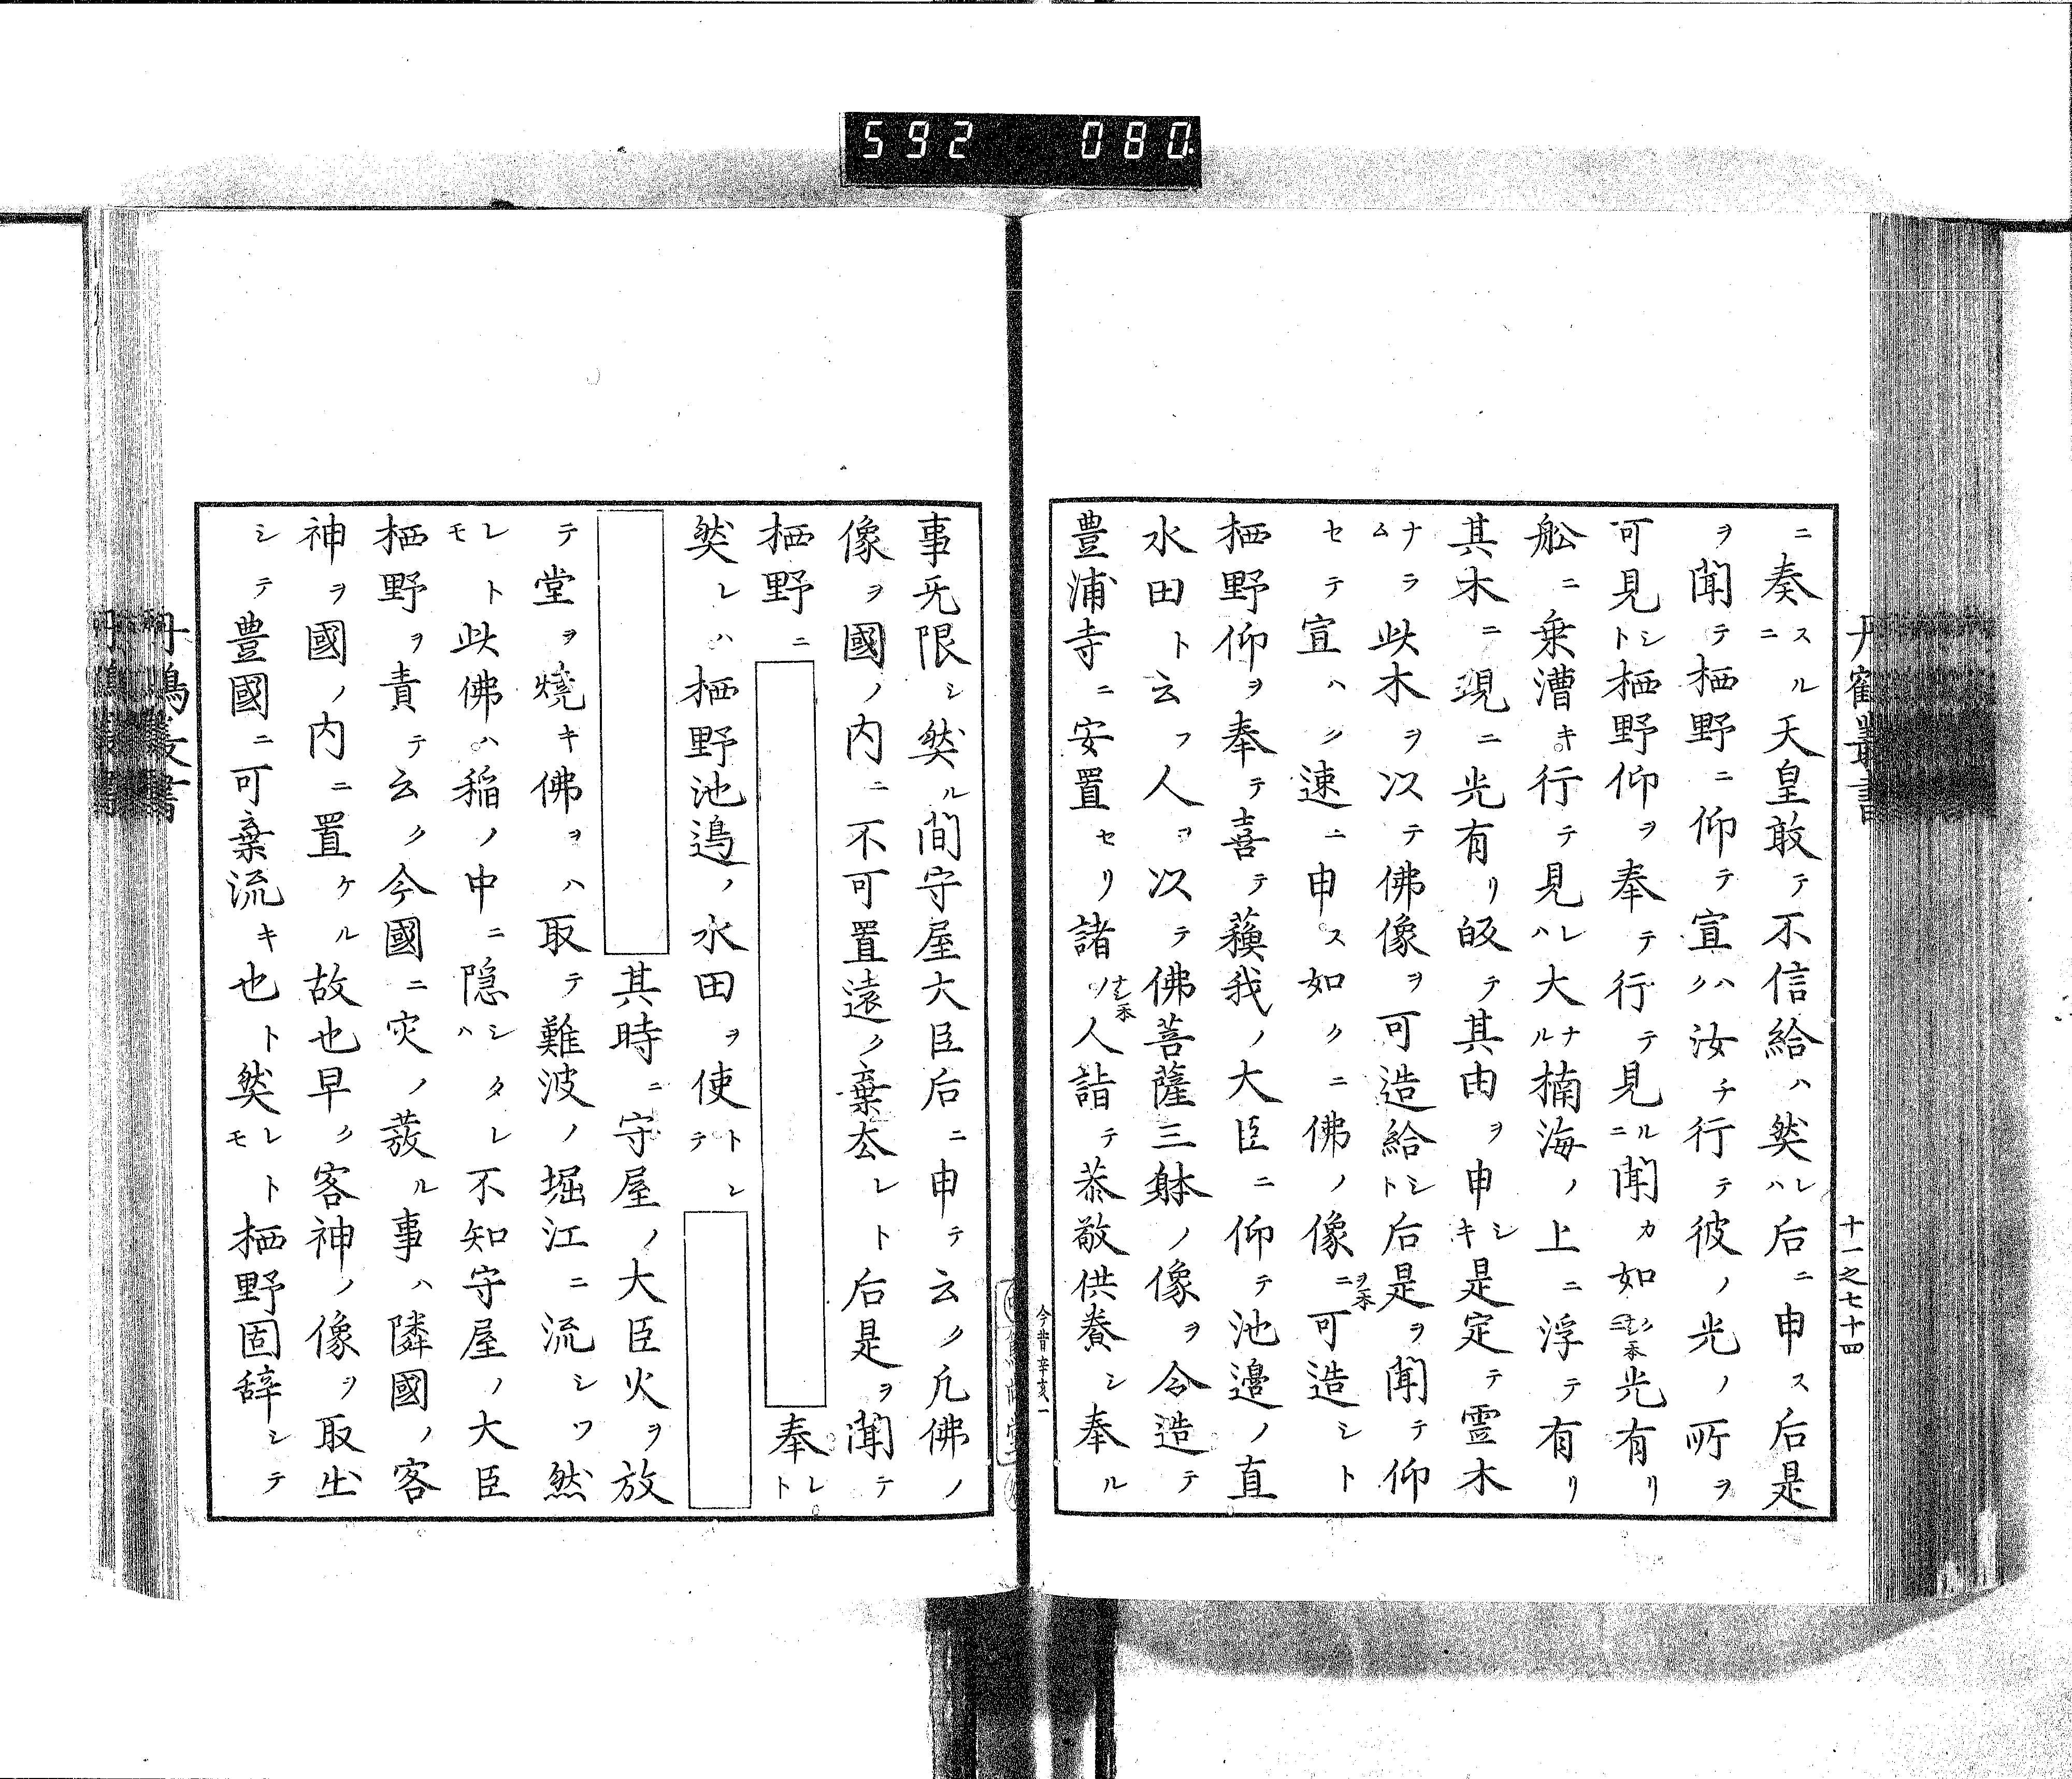 592 080
丹鶴叢書
十一之七十四
ニ奏スルニ天皇敢テ不信給ハ然レハ后ニ申ス后是
ヲ聞テ栖野ニ仰テ宣ハク汝チ行テ彼ノ光ノ所ヲ
可見シト栖野仰ヲ奉テ行テ見ルニ聞カ如光有リ
舩ニ乗漕キ行テ見レハ大ナル楠海ノ上ニ浮テ有リ
其木ニ現ニ光有リ皈テ其由ヲ申シキ是定テ霊木
ナラム此木ヲ以テ佛像ヲ可造給シト后是ヲ聞テ仰
セテ宣ハシ速ニ申ス如クニ佛ノ像ニヲ本可造シト
栖野仰ヲ奉テ喜テ蘓我ノ大臣ニ仰テ池邉ノ直
水田ト云フ人ヲ以テ佛菩薩三躰ノ像ヲ令造テ
豊浦寺ニ安置セリ諸ノ人詣テ恭敬供養シ奉ル
今昔辛亥一
事旡限シ然ル間守屋大臣后ニ申テ云ク凡佛ノ
像ヲ國ノ内ニ不可置遠ク棄厺レト后是ヲ聞テ
栖野ニ 奉レト
然レハ栖野池邉ノ水田ヲ使トシテ
其時ニ守屋ノ大臣火ヲ放
テ堂ヲ燒キ佛ヲハ取テ難波ノ堀江ニ流シツ然
レトモ此佛ハ稲ノ中ニ隠シタレハ不知守屋ノ大臣
栖野ヲ責テ云ク今國ニ灾ノ蕟ル事ハ隣國ノ客
神ヲ國ノ内ニ置ケル故也早ク客神ノ像ヲ取出
シテ豊國ニ可棄流キ也ト然レトモ栖野固辞シテ